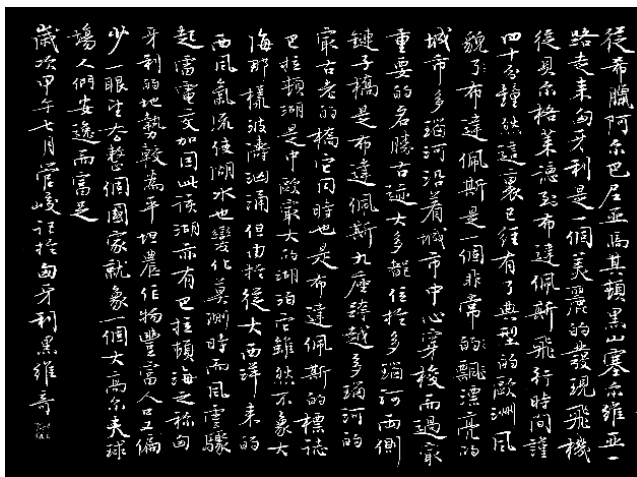 從希臘阿尔巴尼亚馬其頓黑山塞尔維亚一
路走来匈牙利是一個美麗的發現飛機
從貝尔格莱德到布達佩斯飛行時間謹
四十分鐘然這裏已經有了典型的歐洲風
貌了布達佩斯是一個非常的飄漂亮的
城市多瑙河沿着城市中心穿梭而過最
重要的名勝古迹大多都位於多瑙河两側
鏈子橋是布達佩斯九座跨越多瑙河的
最古老的橋它同時也是布達佩斯的標誌
巴拉頓湖是中歐最大的湖泊它雖然不象大
海那樣波濤汹涌但由於從大西洋来的
西風氣流使湖水也變化莫測時而風雲驟
起雷電交加因此該湖亦有巴拉頓海之称匈
牙利的地勢較為平坦農作物豐富人口又偏
少一眼望去整個國家就象一個大高尔夫球
場人們安逸而富足
歲次甲午七月管峻記於匈牙利黑維哥